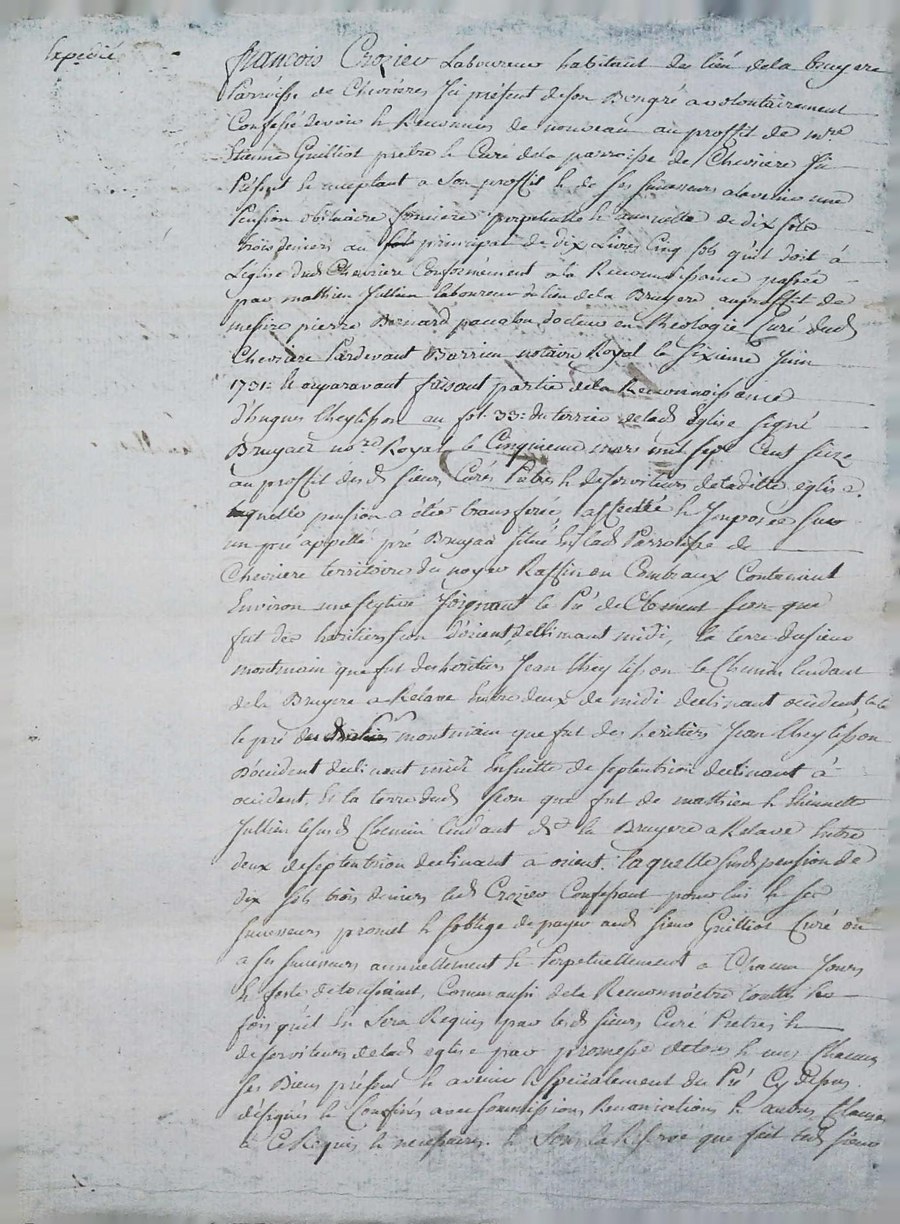 Expedié
françois Crozier Laboureur habitant du lieu dela bruyere
Parroisse de Chevrieres Ici présent de son Bongré a volontairement
Confessé devoir & Reconnu de nouveau au proffit de mre
Etienne Guilliot pretre & Curé dela parroisse de Chevriere Ici
Présent & aceptant a Son proffit & de ses successeurs alavenir une
Pension obituaire fonciere perpetuelle & annuelle de dix sols
trois deniers au principal de dix Livres Cinq sols qu'il doit à
L'eglise dud Chevriere Conformément a la Reconnoissance passée
par mathieu Jullien laboureur du lieu dela Bruyere au proffit de
messire pierre Bernard docteur en theologie Curé dud
Chevriere Pardevant Barrieu notaire Royal le sixieme Juin
1731: & auparavant faisant partie dela Reconnoissance
d'hugues Cheylisson au fol: 33: du terrier delad Eglise signé
Bruyaed nore Royal le Cinquieme mars mil sept Cent seize
au proffit desd sieurs Curés Prètres & deserviteurs deladitte eglise.
laquelle pension a été transferée affectée & Imposée sur
un pré appellé pré Bruyaa situé en lad Parroisse de
Chevriere territoire du noyer Raffin en Combaux Contenant
Environ une seytive Joignant le Pré de Clement sion que
fut des heritiers sion d'orient declinant midi, la terre du sieur
montmain que fut des heritiers Jean Cheylisson le Chemin tendant
dela Bruyere a Relave entre deux de midi declinant occident
le pré du sieur montmain que fut des heritiers Jean Cheylisson
d'occident declinant midi Ensuitte de septentrion declinant à
occident, Et la terre dud sion que fut de mathieu & Etiennette
Jullien le susd Chemin tendant de la Bruyere a Relave Entre
deux de septentrion declinant à orient. laquelle susd pension de
dix sols trois deniers led Crozier Confessant pour lui & ses
successeurs promet & soblige de payer aud sieur Guilliot Curé ou
a ses successeurs annuellement & Perpetuellement a Chacun Jours
& feste de toussaint, Comm aussi dela Reconnoître touttes les
fois qu'il En Sera Requis par lesd sieurs Curé Pretres &
deserviteurs delad eglise par promesse de tous & uns Chacuns
ses Biens présent & avenir & spécialement du Pré Cy dessus
désignés & Confinés avec soumissions Renonciations & autres Clauses
a Ce Requis & necessaires. & Sous la Reserve que fait led sieur